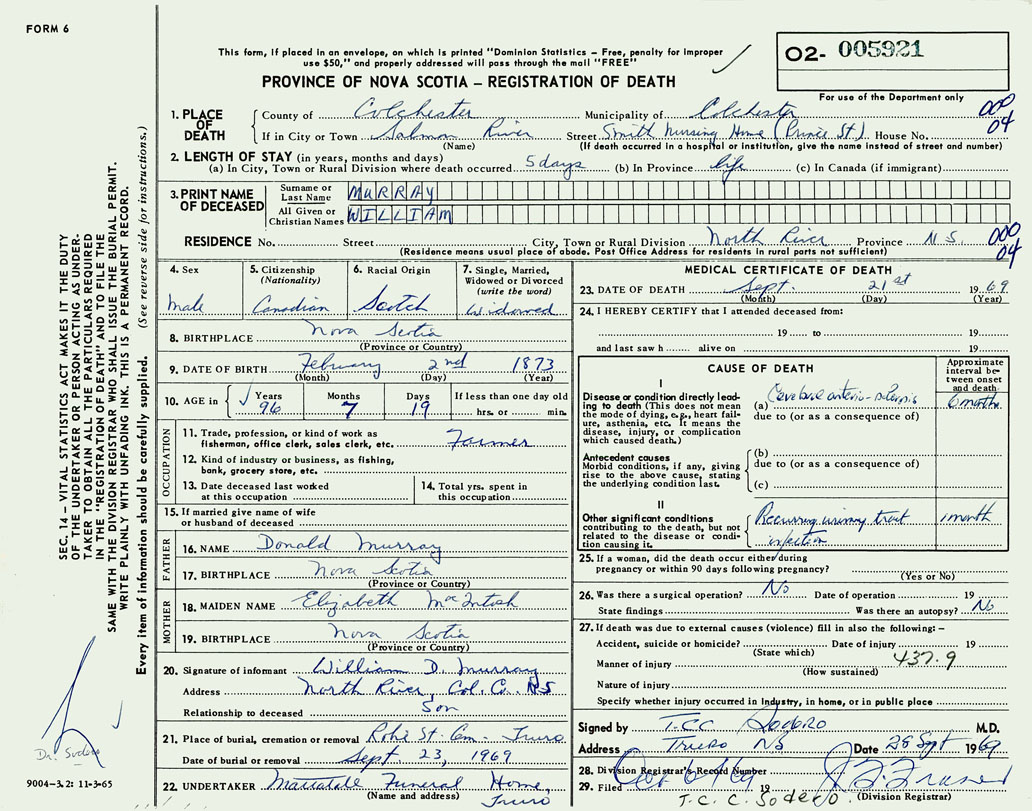 FORM 6
This form, if placed in an envelope, on which is printed "Dominion Statistics – Free, penalty for improper
use $50," and properly addressed will pass through the mail "FREE"
O2- 005921
For use of the Department only
PROVINCE OF NOVA SCOTIA – REGISTRATION OF DEATH
1. PLACE OF DEATH
County of Colchester Municipality of Colchester 000
If in City or Town Salmon River Street Smith Nursing Home (Prince St.) House No. 04
(Name) (If death occurred in a hospital or institution, give the name instead of street and number)
2. LENGTH OF STAY (in years, months and days)
(a) In City, Town or Rural Division where death occurred 5 days (b) In Province life (c) In Canada (if immigrant)
3. PRINT NAME OF DECEASED
Surname or Last Name MURRAY
All Given or Christian Names WILLIAM
RESIDENCE No. Street City, Town or Rural Division North River Province N.S. 000
(Residence means usual place of abode. Post Office Address for residents in rural parts not sufficient) 04
4. Sex
Male
5. Citizenship
(Nationality)
Canadian
6. Racial Origin
Scotch
7. Single, Married,
Widowed or Divorced
(write the word)
Widowed
8. BIRTHPLACE Nova Scotia
(Province or Country)
9. DATE OF BIRTH February 2nd 1873
(Month) (Day) (Year)
10. AGE in Years Months Days If less than one day old
96 7 19 hrs. or min.
OCCUPATION
11. Trade, profession, or kind of work as
fisherman, office clerk, sales clerk, etc. Farmer
12. Kind of industry or business, as fishing,
bank, grocery store, etc.
13. Date deceased last worked
at this occupation
14. Total yrs. spent in
this occupation
15. If married give name of wife
or husband of deceased
FATHER
16. NAME Donald Murray
17. BIRTHPLACE Nova Scotia
(Province or Country)
MOTHER
18. MAIDEN NAME Elizabeth MacIntosh
19. BIRTHPLACE Nova Scotia
(Province or Country)
20. Signature of informant William D. Murray
Address North River, Col. Co. NS
Relationship to deceased Son
21. Place of burial, cremation or removal Robie St. Cem. Truro
Date of burial or removal Sept 23, 1969
22. UNDERTAKER Mattatall Funeral Home,
(Name and address) Truro
MEDICAL CERTIFICATE OF DEATH
23. DATE OF DEATH Sept. 21st 1969
(Month) (Day) (Year)
24. I HEREBY CERTIFY that I attended deceased from:
19 to 19
and last saw h alive on 19
CAUSE OF DEATH
Approximate
interval be-
tween onset
and death
I
Disease or condition directly lead-
ing to death (This does not mean
the mode of dying, e.g., heart fail-
ure, asthenia, etc. It means the
disease, injury, or complication
which caused death.)
(a) Cerebral arterio-sclerosis 6 months
due to (or as a consequence of)
Antecedent causes
Morbid conditions, if any, giving
rise to the above cause, stating
the underlying condition last.
(b)
due to (or as a consequence of)
(c)
II
Other significant conditions
contributing to the death, but not
related to the disease or condi-
tion causing it.
Recurring urinary tract 1 month
infection
25. If a woman, did the death occur either during
pregnancy or within 90 days following pregnancy?
(Yes or No)
26. Was there a surgical operation? No Date of operation 19
State findings Was there an autopsy? No
27. If death was due to external causes (violence) fill in also the following: –
Accident, suicide or homicide? Date of injury 19
(State which) 437.9
Manner of injury
(How sustained)
Nature of injury
Specify whether injury occurred in Industry, in home, or in public place
Signed by T.C.C. Sodero M.D.
Address Truro NS Date 28 Sept 1969
28. Division Registrar's Record Number
29. Filed Oct 6/69 19 J. F. Fraser
T. C. C. Sodero (Division Registrar)
SEC. 14 – VITAL STATISTICS ACT MAKES IT THE DUTY
OF THE UNDERTAKER OR PERSON ACTING AS UNDER-
TAKER TO OBTAIN ALL THE PARTICULARS REQUIRED
IN THE "REGISTRATION OF DEATH" AND TO FILE THE
SAME WITH THE DIVISION REGISTRAR WHO SHALL ISSUE THE BURIAL PERMIT.
WRITE PLAINLY WITH UNFADING INK. THIS IS A PERMANENT RECORD.
Every item of information should be carefully supplied. (See reverse side for instructions.)
Dr. Sodero
9004-3.2: 11-3-65